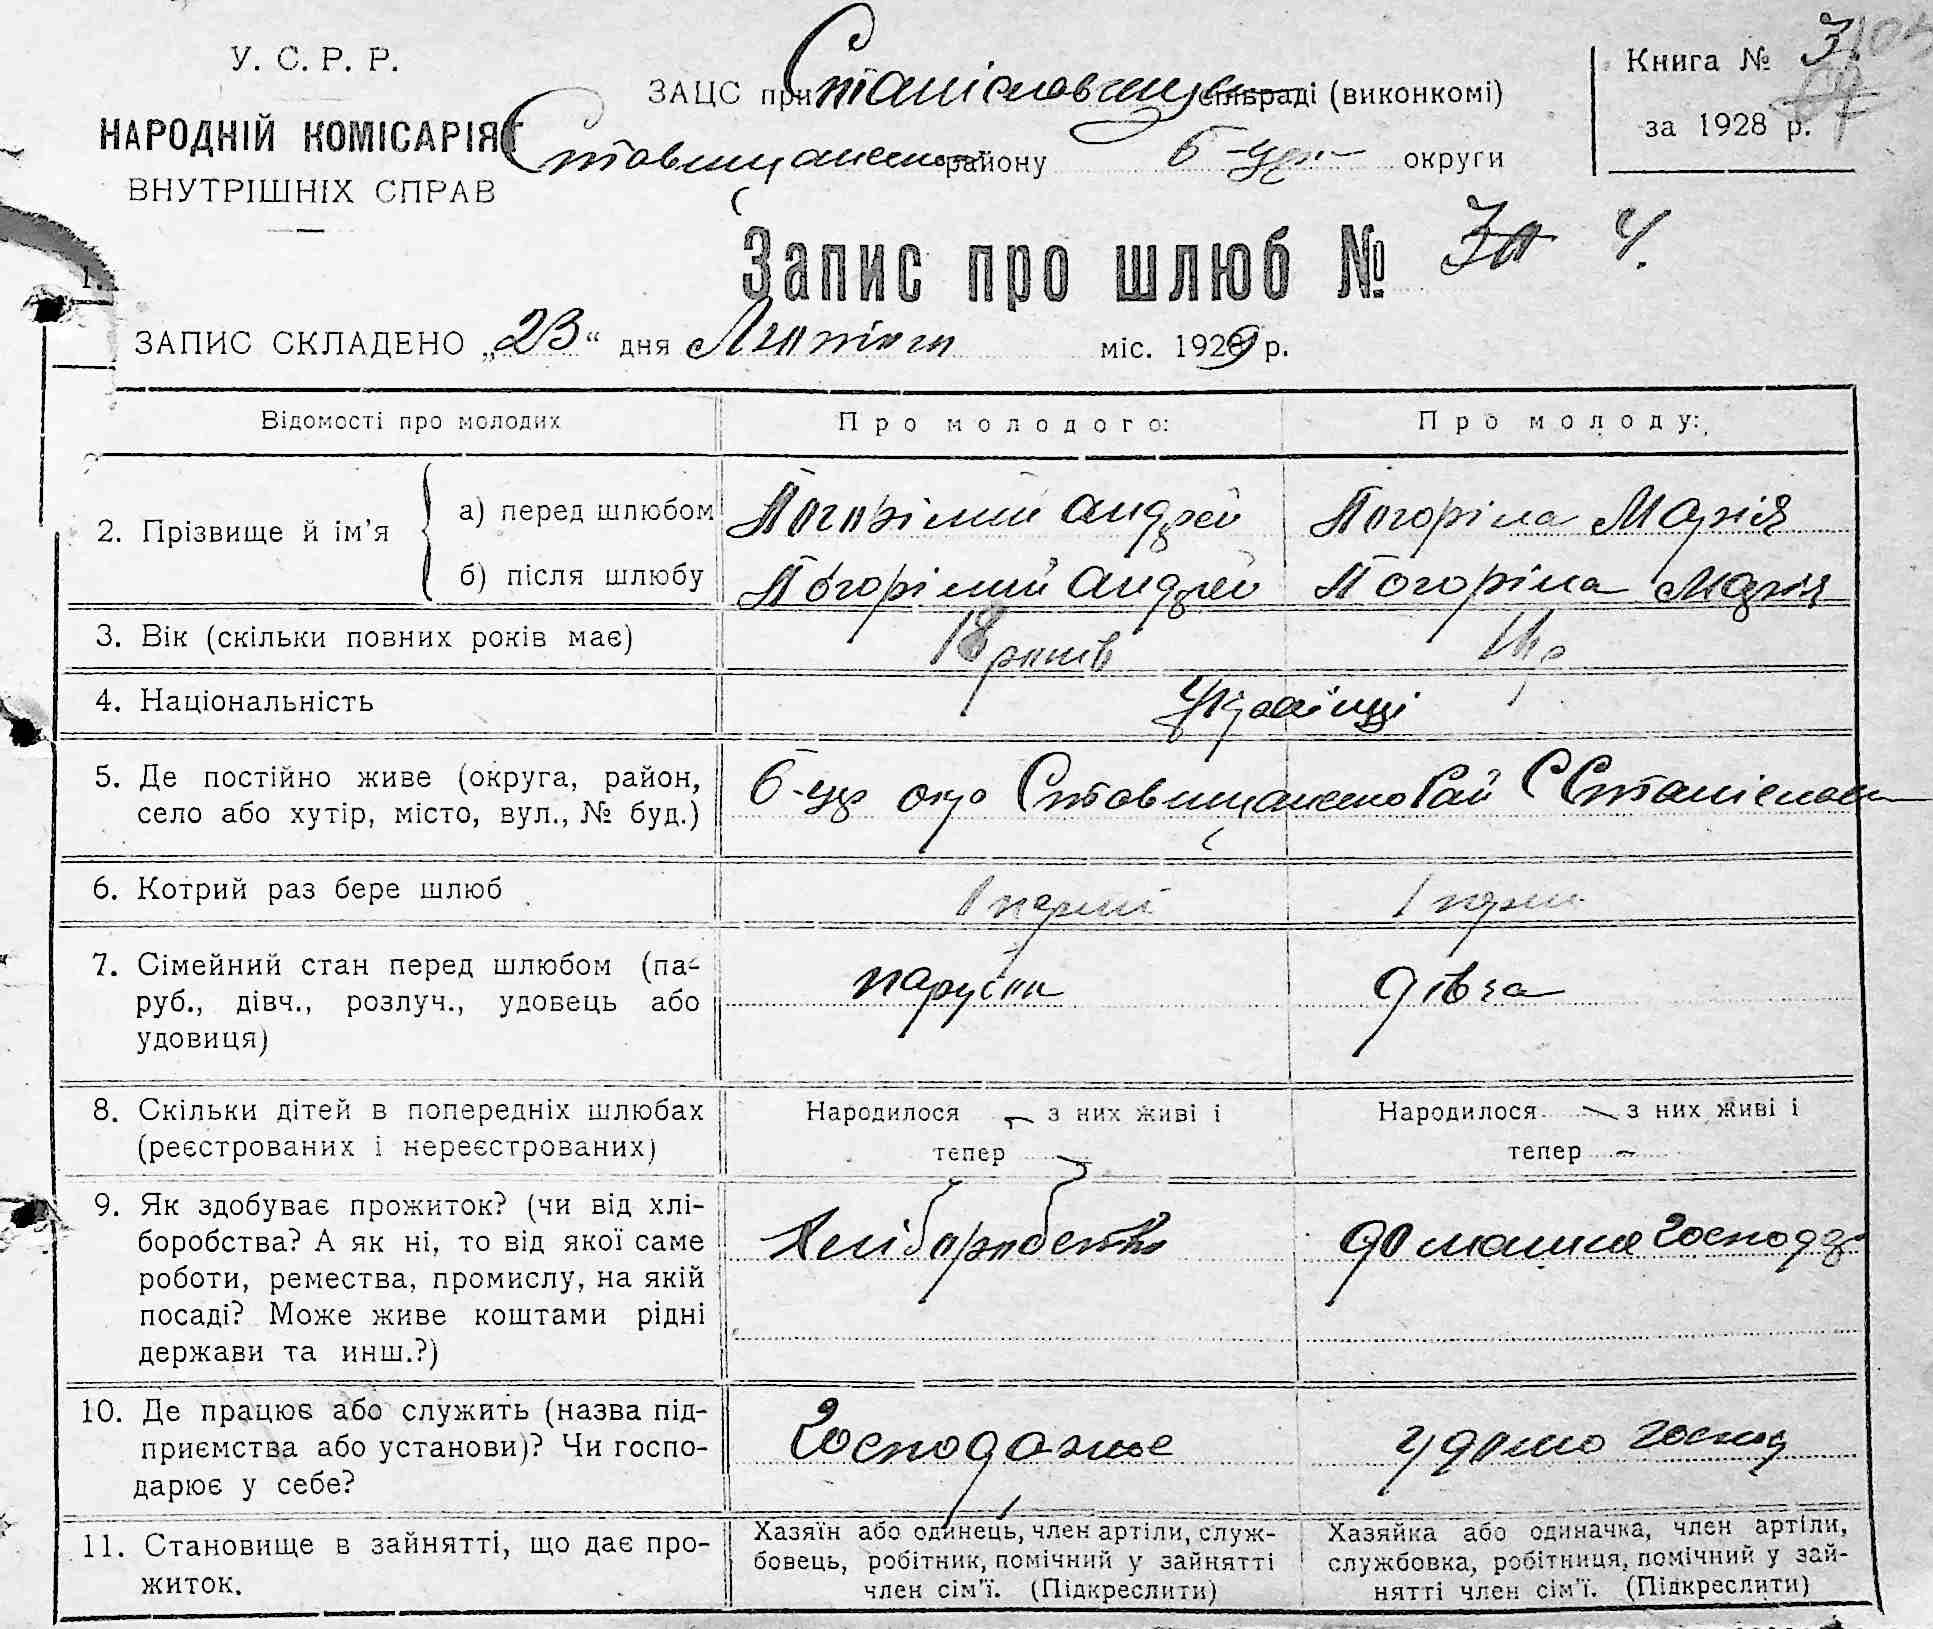 У. С. Р. Р.
НАРОДНІЙ КОМІСАРІЯТ
ВНУТРІШНІХ СПРАВ
ЗАЦС при сільраді (виконкомі)
району Б-Цер округи
Книга № 3
за 1928 р.
Запис про шлюб № 4.
ЗАПИС СКЛАДЕНО „23“ дня Лютого міс. 1929 р.
Відомості про молодих
Про молодого:
Про молоду:
2. Прізвище й ім'я
а) перед шлюбом
Погорілий Андрей
Погоріла Марія
б) після шлюбу
Погорілий Андрей
Погоріла Марія
3. Вік (скільки повних років має)
18 років
4. Національність
Українці
5. Де постійно живе (округа, район,
село або хутір, місто, вул., № буд.)
Б-Цер окр Рай С
6. Котрий раз бере шлюб
1 перший
1 перш
7. Сімейний стан перед шлюбом (па-
руб., дівч., розлуч., удовець або
удовиця)
парубок
дівча
8. Скільки дітей в попередніх шлюбах
(реєстрованих і нереєстрованих)
Народилося – з них живі і
тепер –
Народилося – з них живі і
тепер –
9. Як здобуває прожиток? (чи від хлі-
боробства? А як ні, то від якої саме
роботи, ремества, промислу, на якій
посаді? Може живе коштами рідні
держави та инш.?)
Хліборобство
домашнє господ
10. Де працює або служить (назва під-
приємства або установи)? Чи госпо-
дарює у себе?
удома господ
11. Становище в зайнятті, що дає про-
житок.
Хазяїн або одинець, член артіли, служ-
бовець, робітник, помічний у зайнятті
член сім'ї. (Підкреслити)
Хазяйка або одиначка, член артіли,
службовка, робітниця, помічний у зай-
нятті член сім'ї. (Підкреслити)